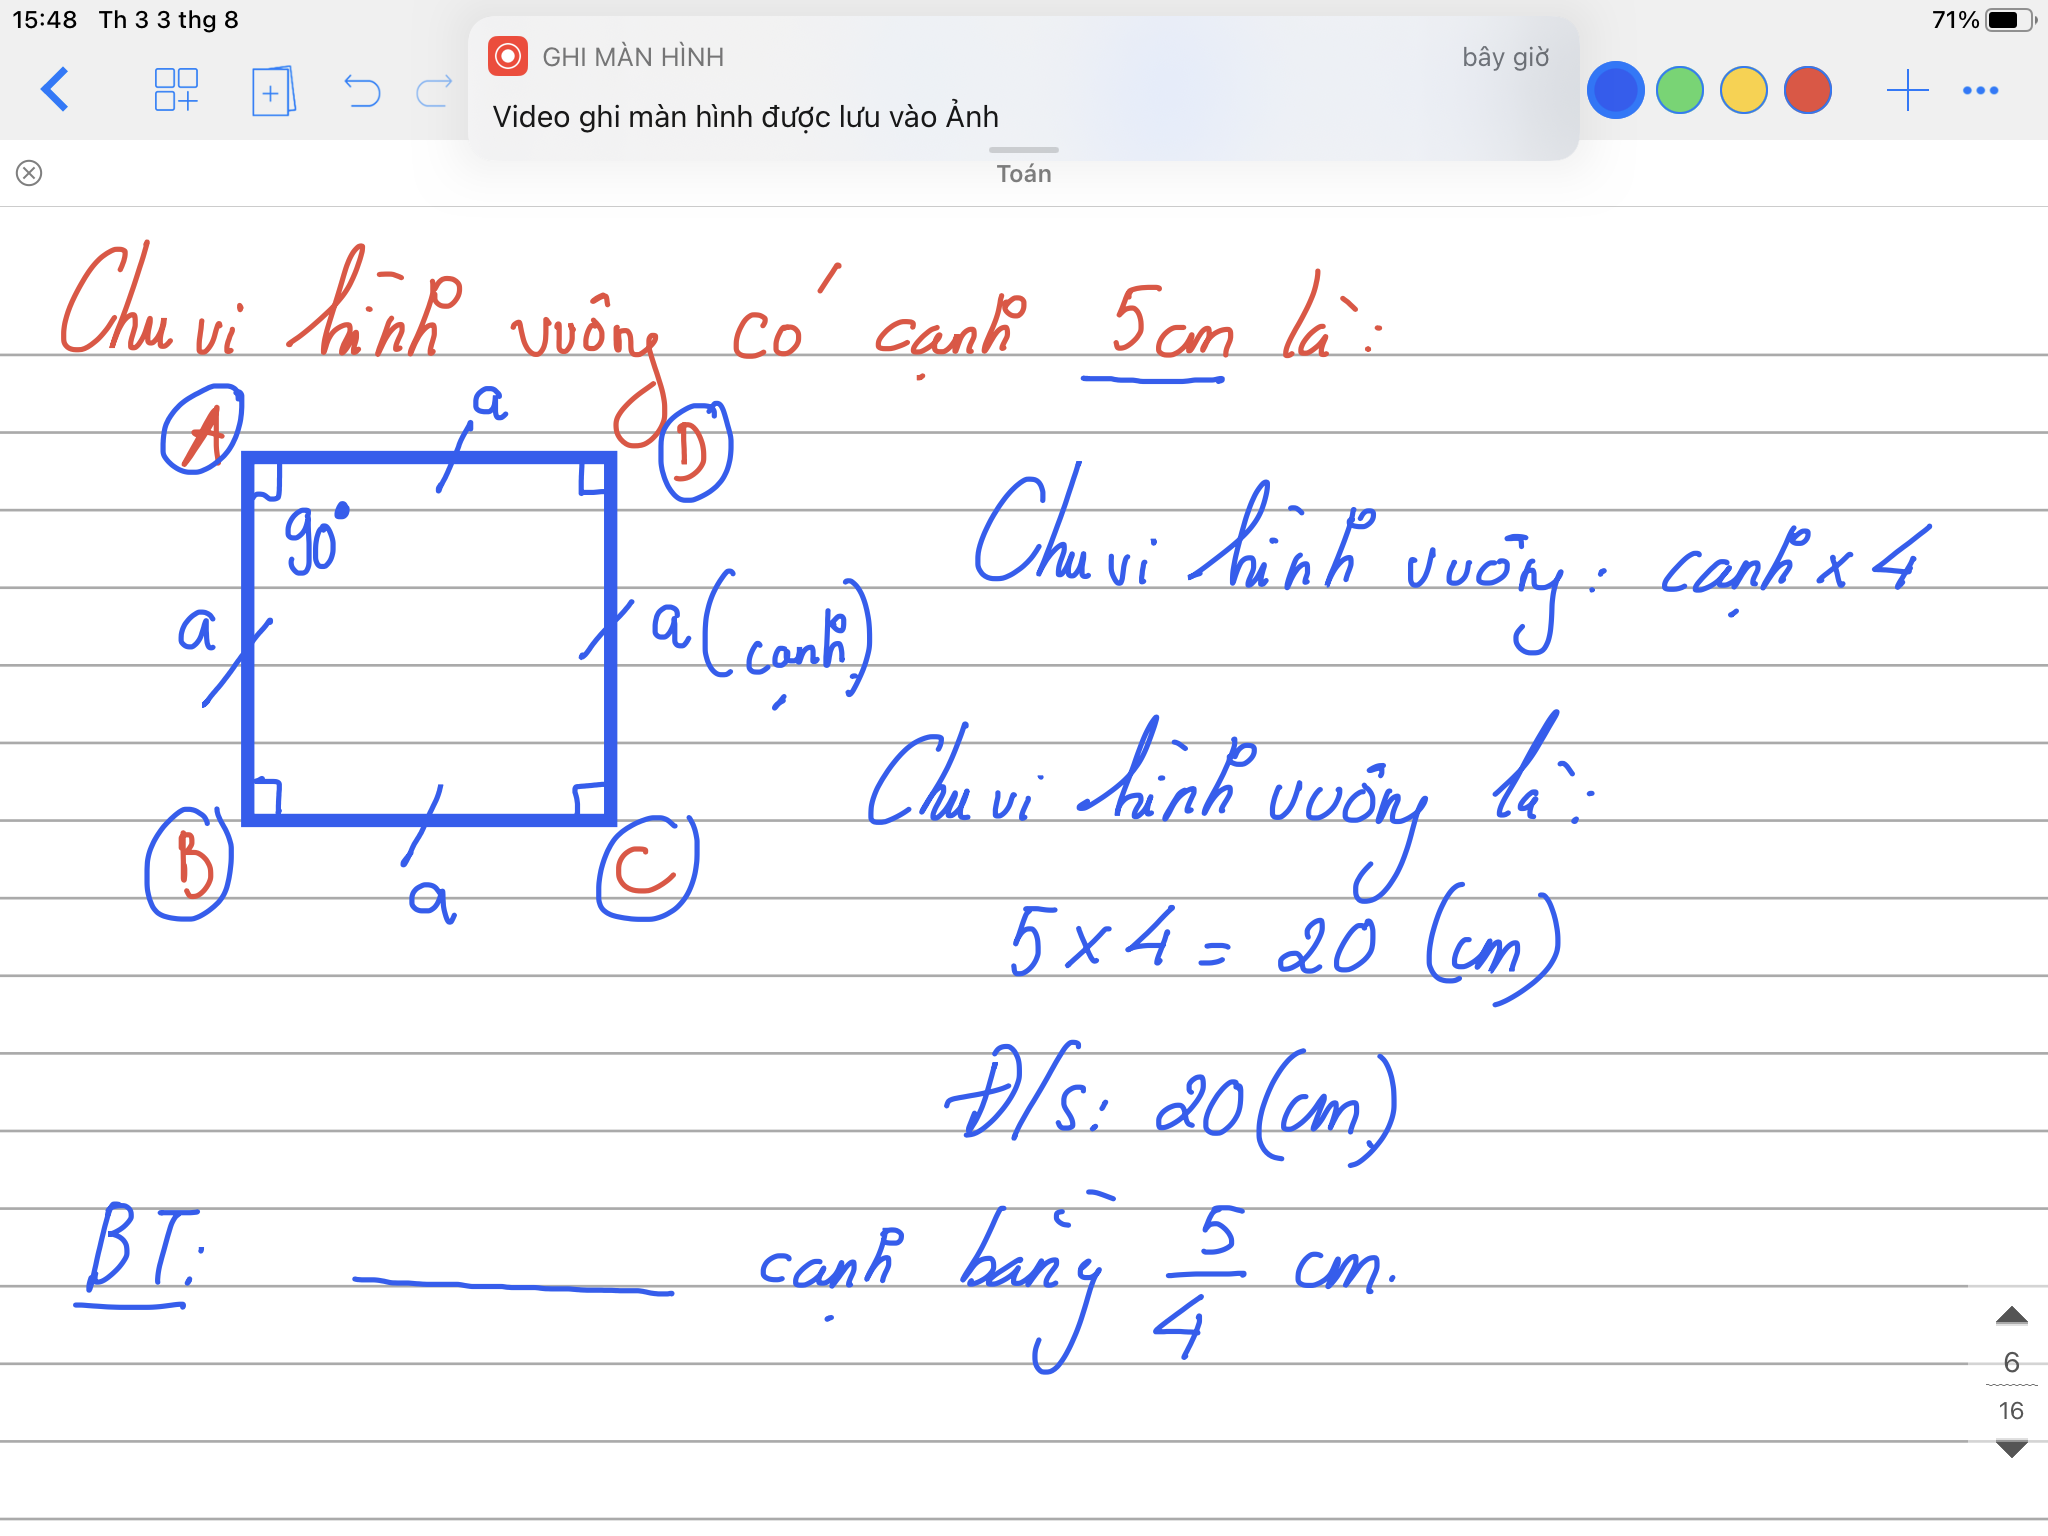 15:48 Th 3 3 thg 8
71%
GHI MÀN HÌNH
bây giờ
Video ghi màn hình được lưu vào Ảnh
Toán
Chu vi hình vuông có cạnh 5cm là:
A
a
D
90°
Chu vi hình vuông: cạnh x 4
a
a (cạnh)
Chu vi hình vuông là:
B
a
C
5 x 4 = 20 (cm)
Đ/s: 20 (cm)
BT: ______ cạnh bằng 5/4 cm.
6
16